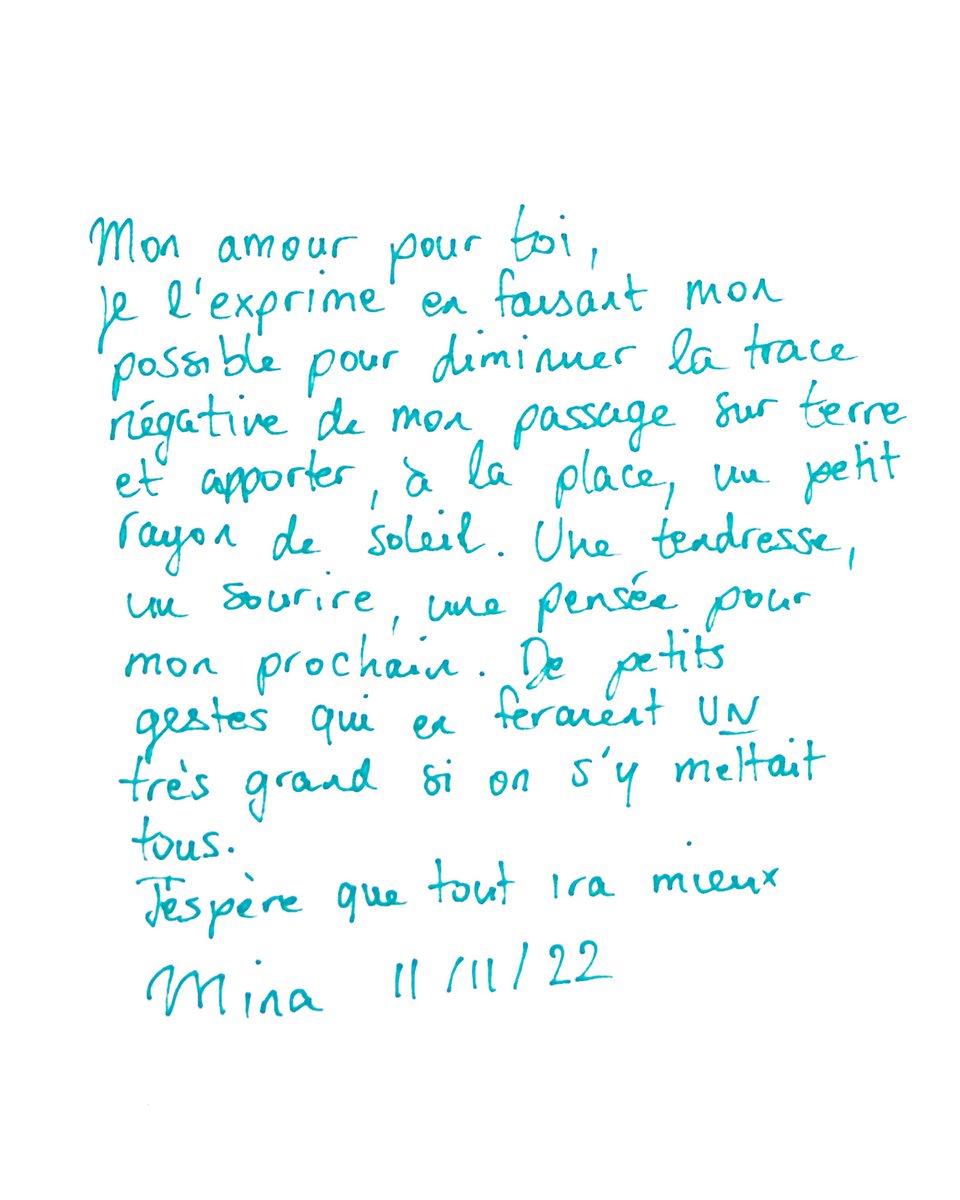 Mon amour pour toi,
je l'exprime en faisant mon
possible pour diminuer la trace
négative de mon passage sur terre
et apporter, à la place, un petit
rayon de soleil. Une tendresse,
un sourire, une pensée pour
mon prochain. De petits
gestes qui en feraient UN
très grand si on s'y mettait
tous.
J'espère que tout ira mieux
Mina 11/11/22